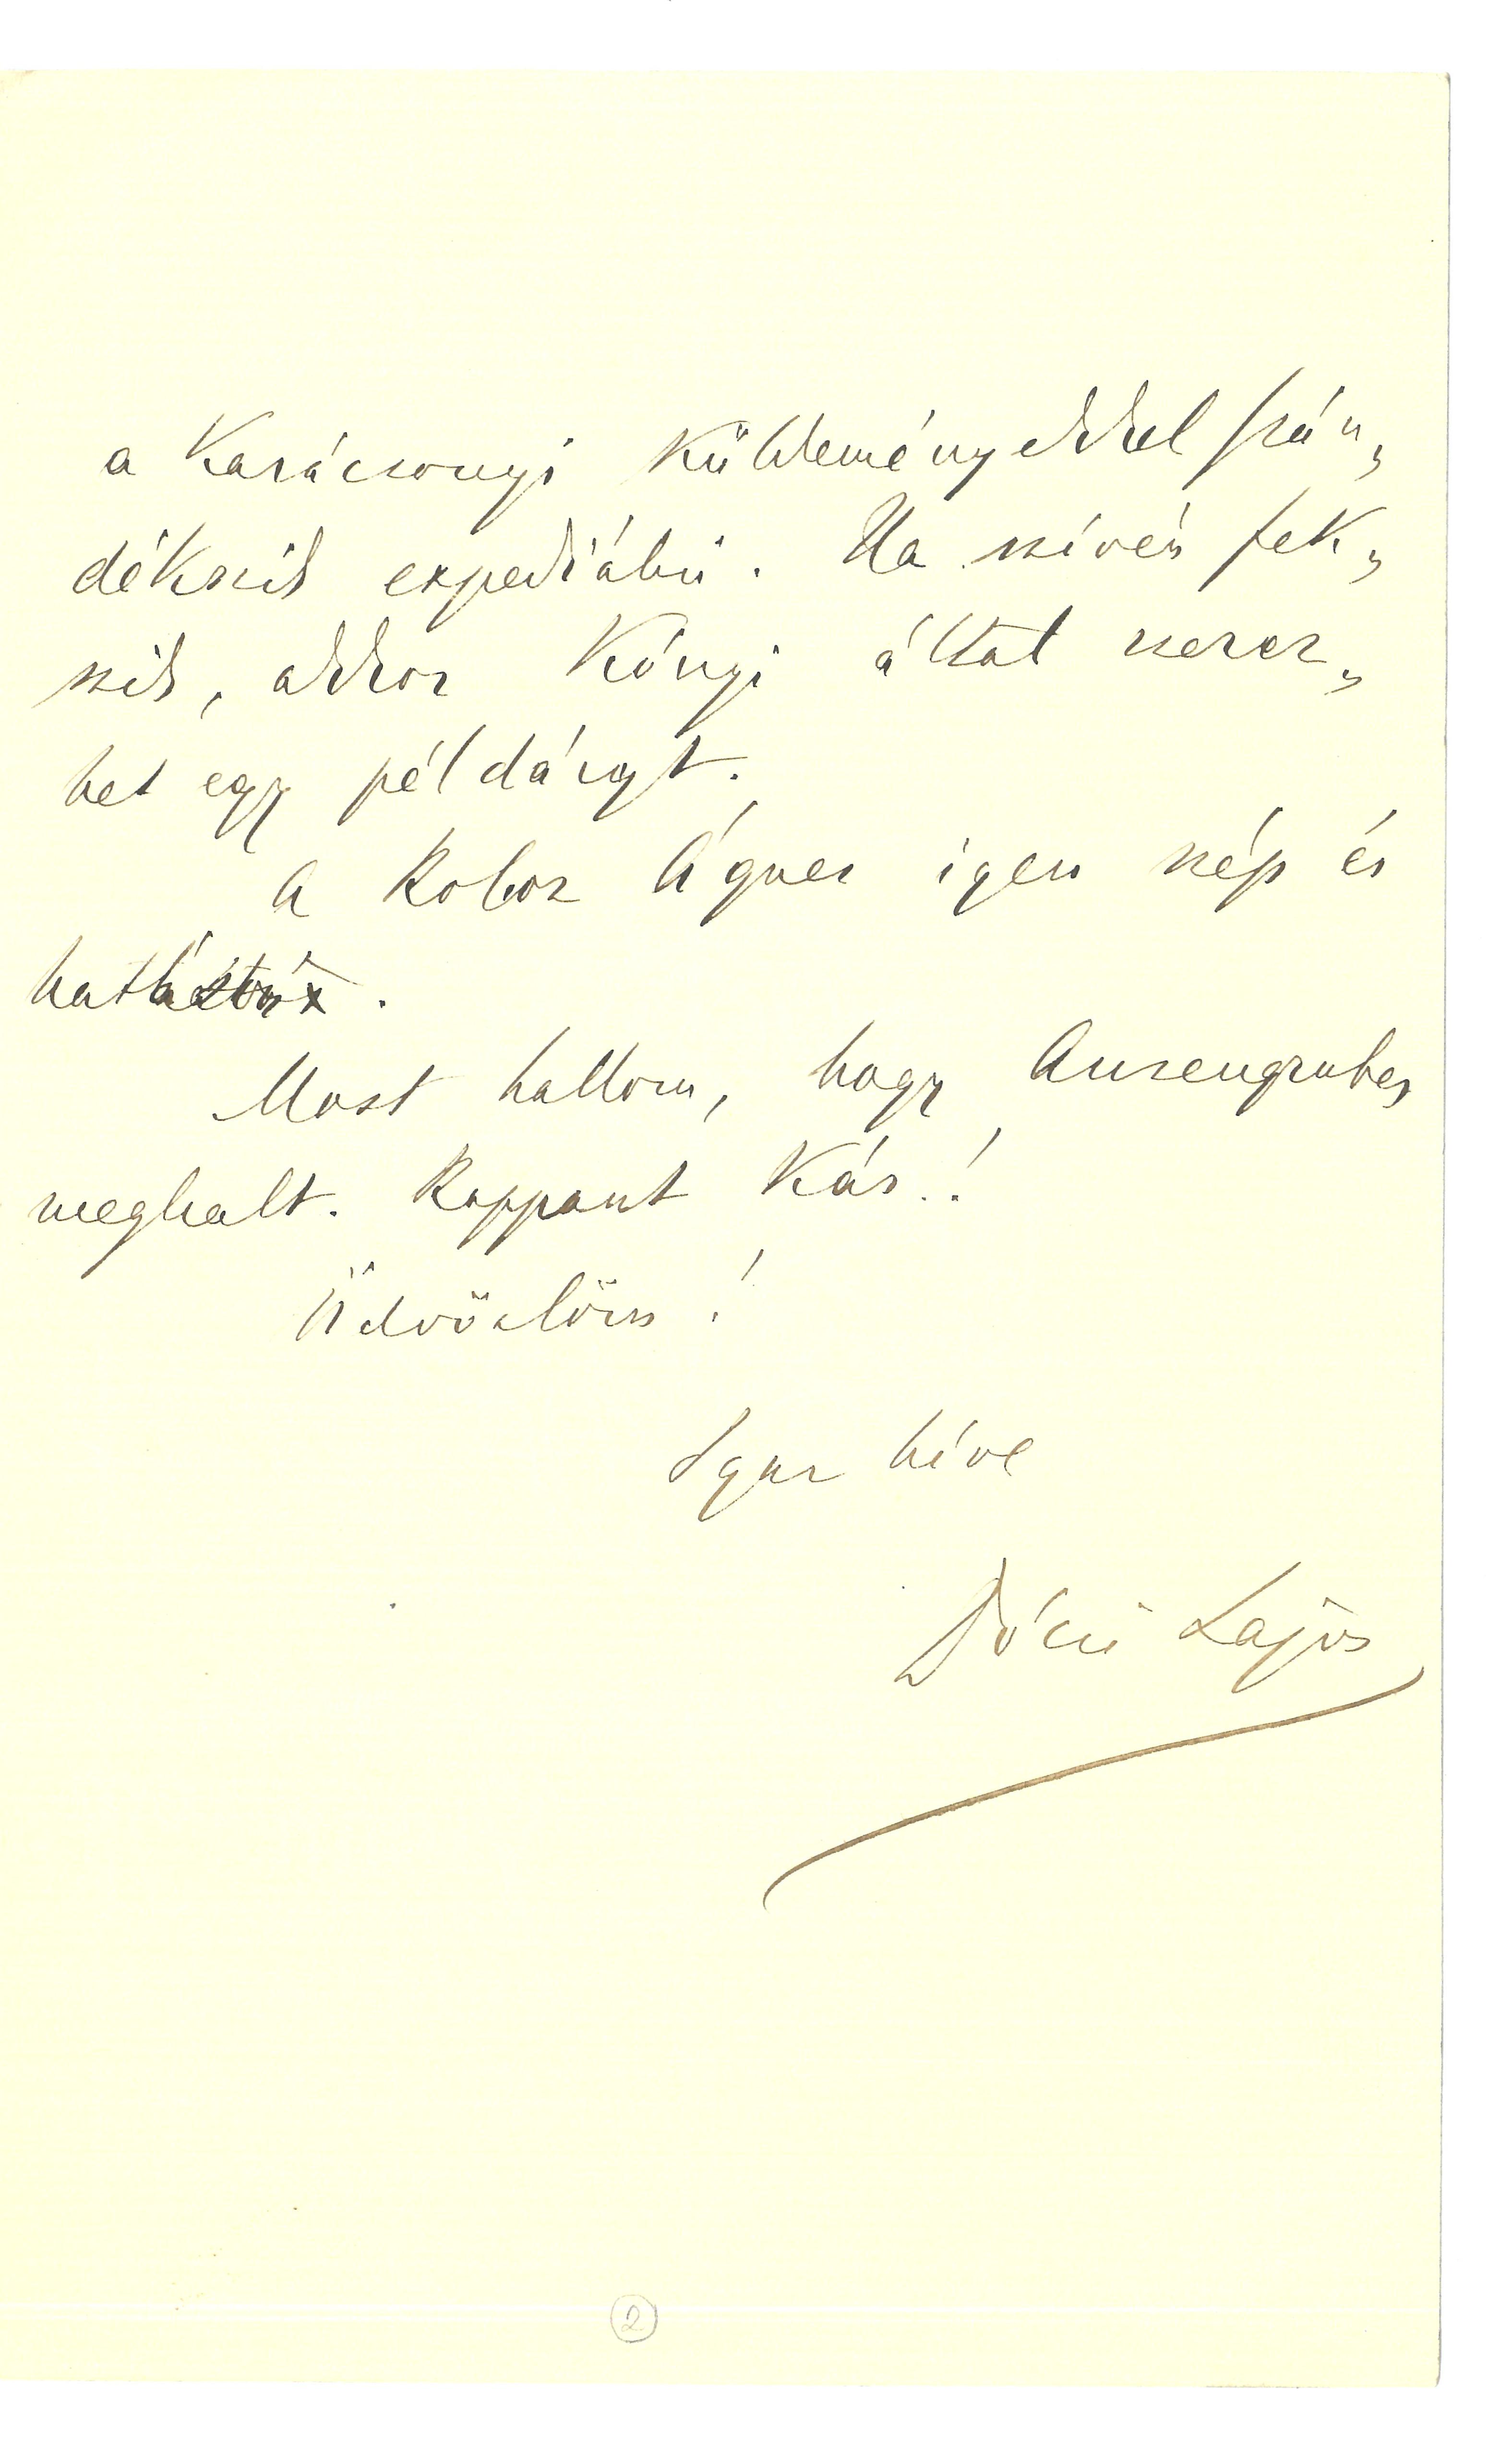 a karácsonyi küldeményekkel szán„
dékszik expediálni. Ha szivén fek„
szik, akkor Kónyi által szerez„
het egy példányt.
A Roboz Ágnes igen szép és
Most hallom, hogy Anzengruber
meghalt. Roppant kár!
Üdvözlöm!
Igaz híve
Dóczi Lajos
2